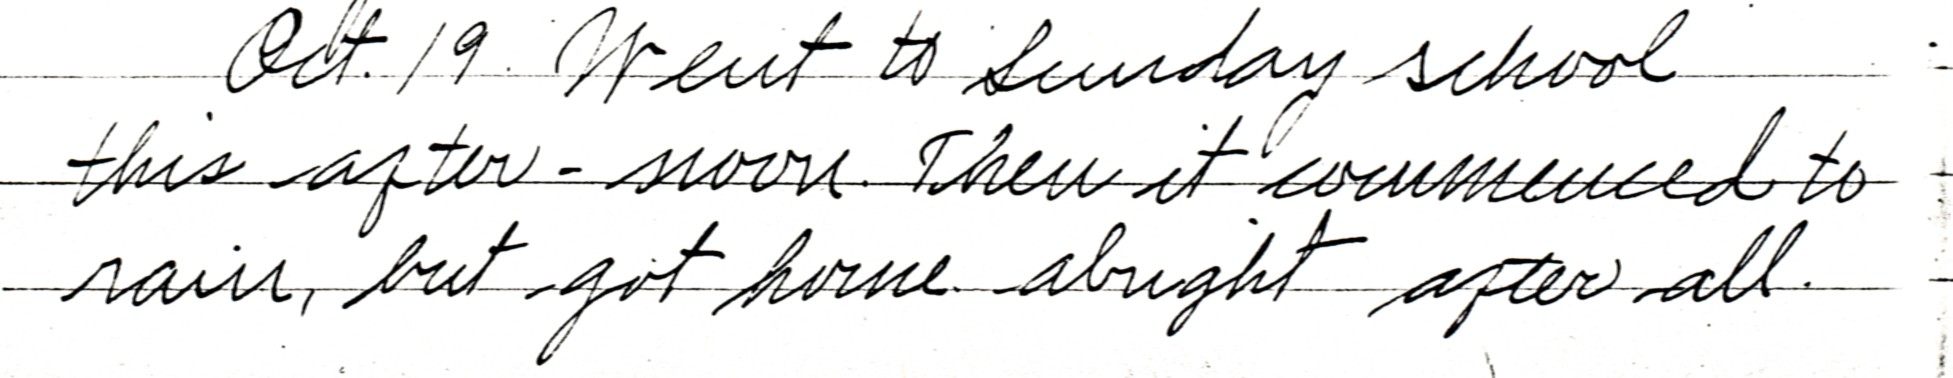 Oct. 19. Went to Sunday school
this after-noon. Then it commenced to
rain, but got home alright after all.